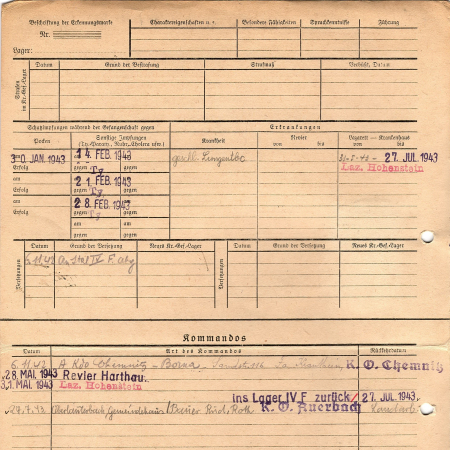 Beschriftung der Erkennungsmarke
Nr.
Lager:
Charaktereigenschaften u. ä.
Besondere Fähigkeiten
Sprachkenntnisse
Führung
Strafen im Kr.-Gef.-Lager
Datum
Grund der Bestrafung
Strafmaß
Verbüßt, Datum
Schutzimpfungen während der Gefangenschaft gegen
Erkrankungen
Pocken
Sonstige Impfungen
(Ty.-Paraty., Ruhr, Cholera usw.)
Krankheit
Revier
von bis
Lazarett — Krankenhaus
von bis
30. JAN. 1943
14. FEB. 1943
27. JUL. 1943
Erfolg
gegen Ty gegen
Laz. Hohenstein
am
21. FEB. 1943
Erfolg
gegen Ty gegen
am
28. FEB. 1943
Erfolg
gegen gegen
am am am
Erfolg gegen gegen
Versetzungen
Datum
Grund der Versetzung
Neues Kr.-Gef.-Lager
Versetzungen
Datum
Grund der Versetzung
Neues Kr.-Gef.-Lager
An Stal IV F.
Kommandos
Datum
Art des Kommandos
Rückkehrdatum
6.11.42 A Kdo Chemnitz - Borna, K. O. Chemnitz
28. MAI. 1943 Revier Harthau.
31. MAI. 1943 Laz. Hohenstein
ins Lager IV F zurück 27. JUL. 1943
K. O. Auerbach
27.7.43 Gemeindehaus